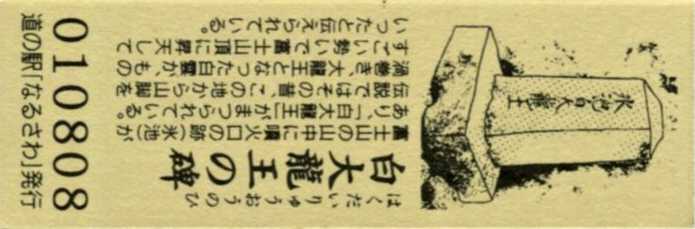 はくだいりゅうおうのひ
白大龍王の碑
富士山の山中に噴火口の跡(氷池)が
あり、「白大龍王」がまつられている。
伝説ではその昔、この地から山脚を
渦巻き、大龍王となった白雲が、もの
すごい勢いで富士山頂に昇天して
いったと伝えられている。
氷池白大龍王
010808
道の駅「なるさわ」発行